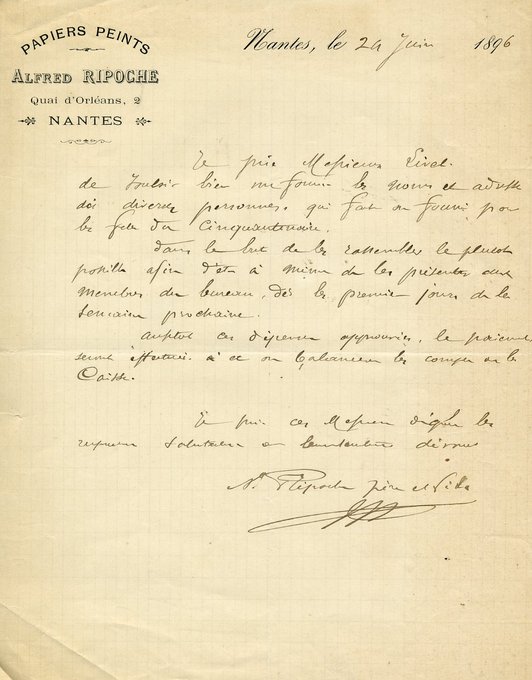 PAPIERS PEINTS
ALFRED RIPOCHE
Quai d'Orléans, 2
NANTES
Nantes, le 24 Juin 1896
Je prie Messieurs
de Vouloir bien me fournir les noms et adresse
des diverses personnes, qui fait ou fourni pour
les fête du Cinquantenaire.
dans le but de les rassembler le plutot
possible afin d'etre à même de les présenter aux
membres du bureau, dès les premier jours de la
semaine prochaine.
aussitot ces dépenses approuvées, le paiement
seront effectués à ce
Caisse.
Je prie ces Messieurs
salutation
Ripoche père et